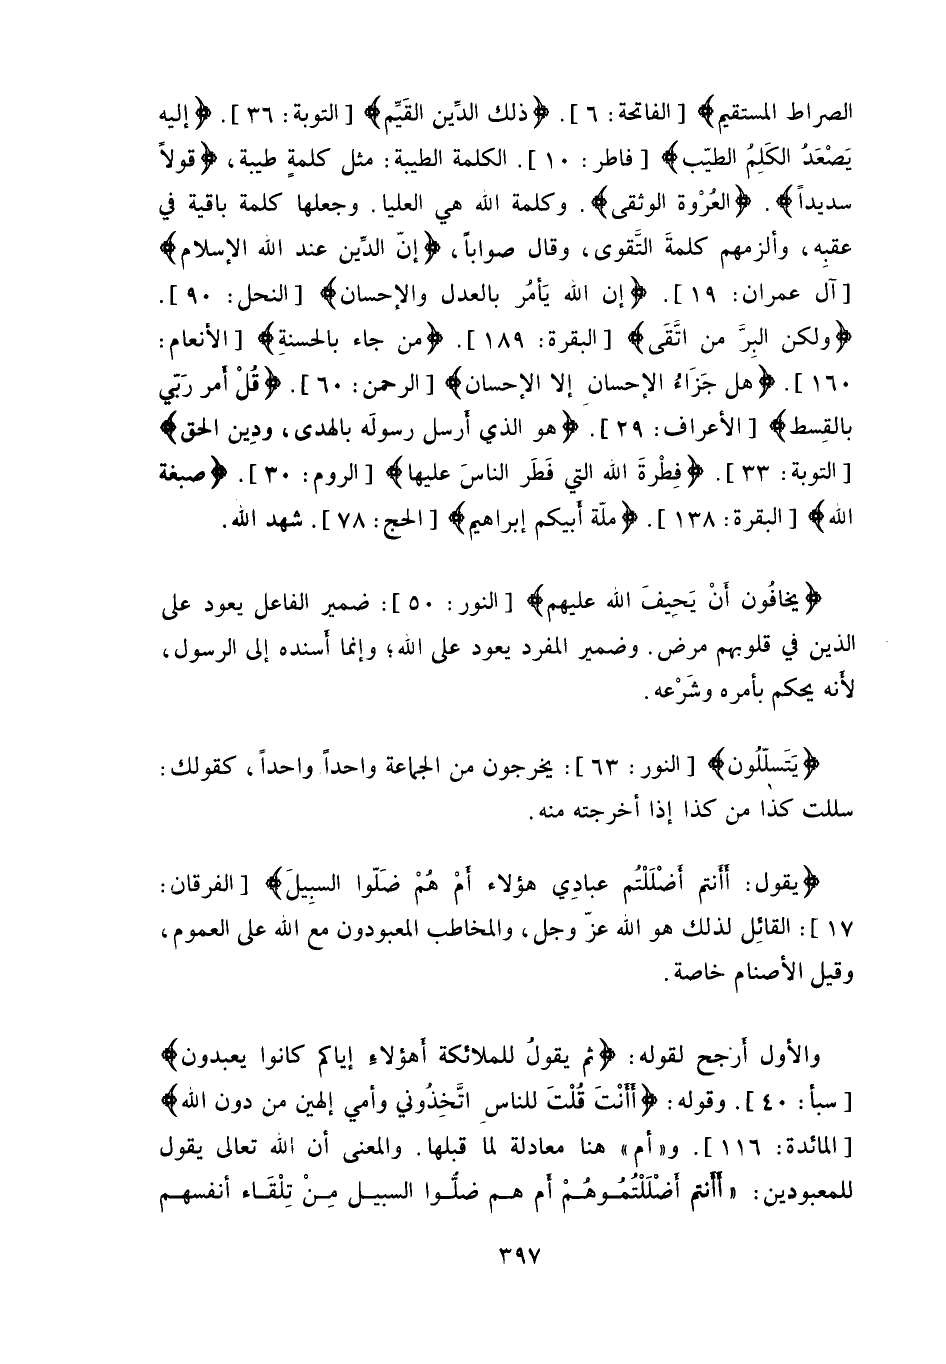 الصراط المستقيم﴾ [الفاتحة: ٦]. ﴿ذلك الدِّين القَيِّم﴾ [التوبة: ٣٦]. ﴿إليه
يَصْعَدُ الكَلِمُ الطيّب﴾ [فاطر: ١٠]. الكلمة الطيبة: مثل كلمةٍ طيبة، ﴿قولاً
سديداً﴾. ﴿العُرْوة الوثقى﴾. وكلمة الله هي العليا. وجعلها كلمة باقية في
عقبِه، وألزمهم كلمةَ التَّقوى، وقال صواباً، ﴿إنّ الدِّين عند الله الإسلام﴾
[آل عمران: ١٩]. ﴿إن الله يَأمُر بالعدل والإحسان﴾ [النحل: ٩٠].
﴿ولكن البِرَّ من اتَّقَى﴾ [البقرة: ١٨٩]. ﴿من جاء بالحسنةِ﴾ [الأنعام:
١٦٠]. ﴿هل جَزَاءُ الإحسانِ إلا الإحسان﴾ [الرحمن: ٦٠]. ﴿قُلْ أَمر رَبّي
بالقِسط﴾ [الأعراف: ٢٩]. ﴿هو الذي أَرسل رسولَه بالهدى، ودِين الحق﴾
[التوبة: ٣٣]. ﴿فِطْرةَ الله التي فَطَر الناسَ عليها﴾ [الروم: ٣٠]. ﴿صبغة
الله﴾ [البقرة: ١٣٨]. ﴿ملّة أَبيكم إبراهيم﴾ [الحج: ٧٨]. شهد الله.
﴿يخافُون أَنْ يَحِيفَ الله عليهم﴾ [النور: ٥٠]: ضمير الفاعل يعود على
الذين في قلوبهم مرض. وضمير المفرد يعود على الله؛ وإنما أَسنده إلى الرسول،
لأَنه يحكم بأمره وشَرْعه.
﴿يَتَسلّلُون﴾ [النور: ٦٣]: يخرجون من الجماعة واحداً واحداً، كقولك:
سللت كذا من كذا إذا أخرجته منه.
﴿يقول: أَأَنتم أَضْلَلْتُم عبادِي هؤلاء أَمْ هُمْ ضَلّوا السبِيلَ﴾ [الفرقان:
١٧]: القائِل لذلك هو الله عزّ وجل، والمخاطب المعبودون مع الله على العموم،
وقيل الأصنام خاصة.
والأول أَرجح لقوله: ﴿ثم يقولُ للملائكة أَهؤلاءِ إياكم كانوا يعبدون﴾
[سبأ: ٤٠]. وقوله: ﴿أَأَنْتَ قُلْتَ للناسِ اتَّخِذُوني وأمي إلهين من دون الله﴾
[المائدة: ١١٦]. و«أم» هنا معادلة لما قبلها. والمعنى أن الله تعالى يقول
للمعبودين: «أَأَنتم أَضْلَلْتُمُوهُمْ أَم هم ضلُّوا السبيل مِنْ تِلْقَاء أنفسهم
٣٩٧